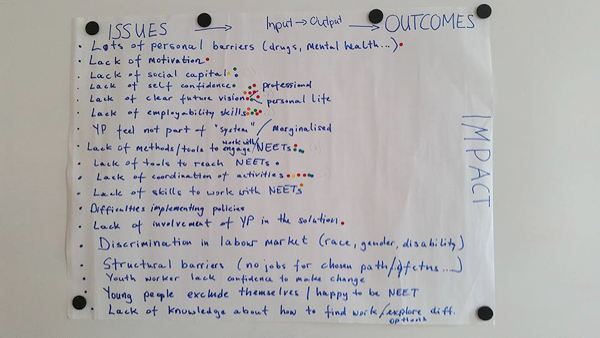 ISSUES → Input → Output → OUTCOMES
• Lots of personal barriers (drugs, mental health...)
• Lack of motivation
• Lack of social capital
• Lack of self confidence
professional
• Lack of clear future vision
personal life
• Lack of employability skills
• YP feel not part of "system" / marginalised
• Lack of methods/tools to engage/NEETs
work with/
• Lack of tools to reach NEETs
• Lack of coordination of activities
• Lack of skills to work with NEETs
• Difficulties implementing policies
• Lack of involvement of YP in the solution
• Discrimination in labour market (race, gender, disability)
• Structural barriers (no jobs for chosen path/
• Youth worker lack confidence to make change
• Young people exclude themselves / happy to be NEET
• Lack of knowledge about how to find work/explore diff.
options
IMPACT